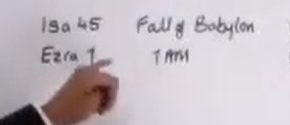 Isa 45 Fall of Babylon
Ezra 1 1 AM